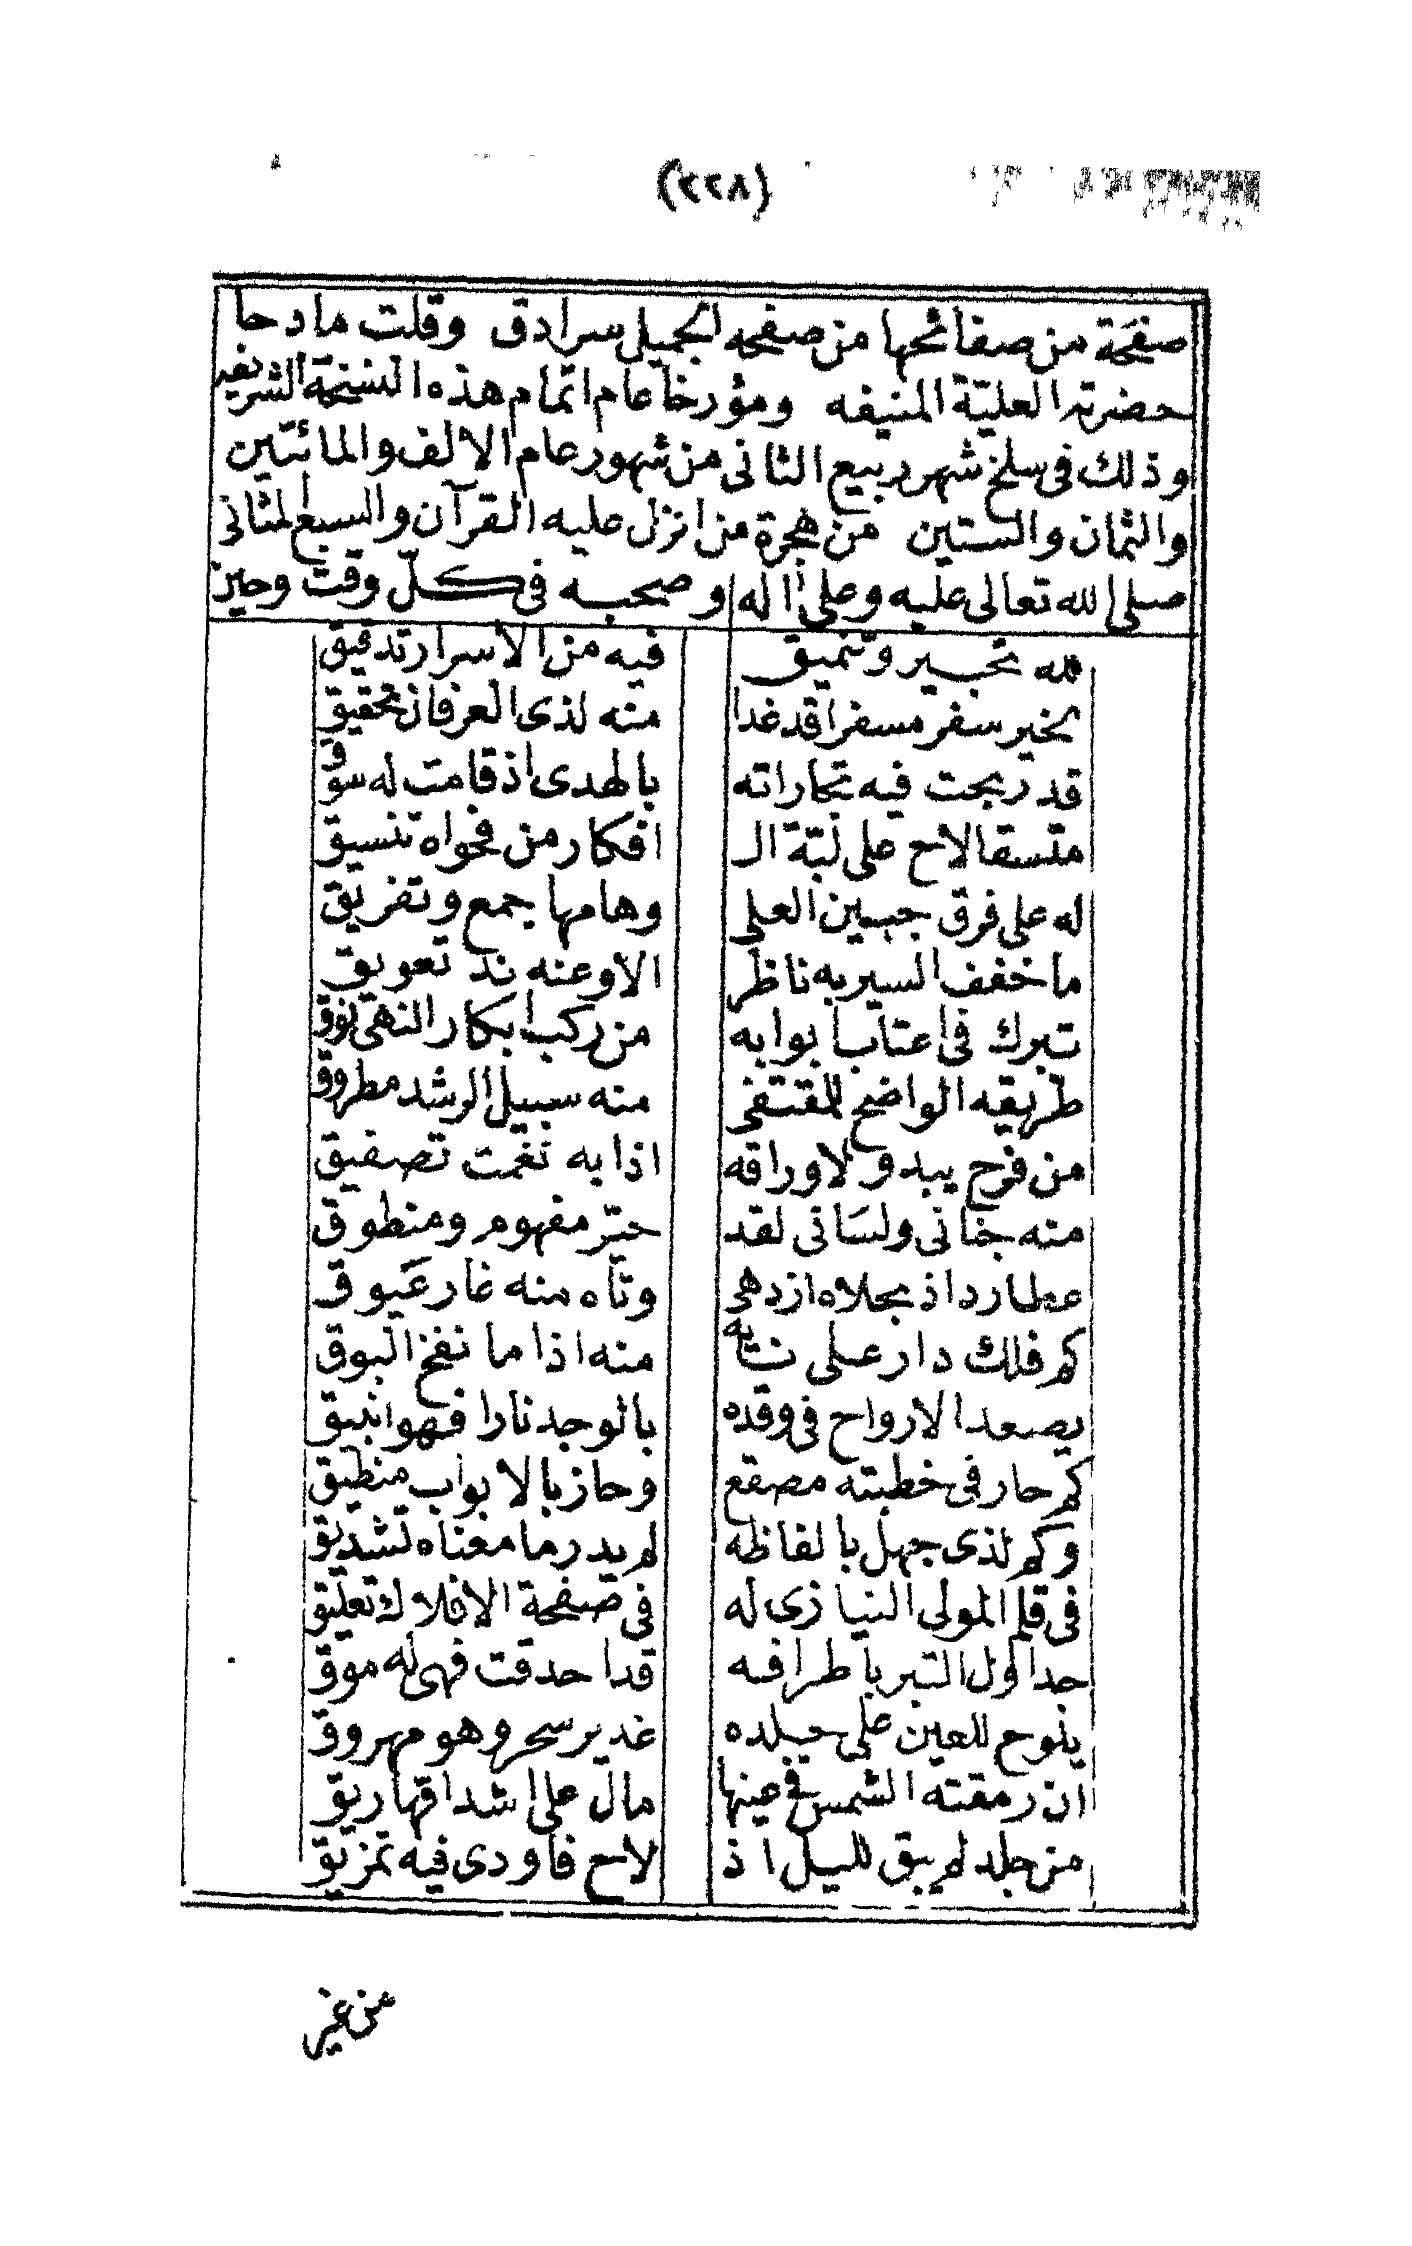 (٢٢٨)
صفحة من صفائحها من صفحه الجميل سرادق وقلت مادحا
حضرته العلية المنيفه ومؤرخا عام اتمام هذه النسخة الشريفه
وذلك فى سلخ شهر ربيع الثانى من شهور عام الالف والمائتين
والثمان والستين من هجرة من انزل عليه القرآن والسبع المثانى
صلى الله تعالى عليه وعلى اله وصحبه فى كل وقت وحين
لله تحبير وتنميق فيه من الاسرار تدقيق
بخير سفر مسفرا قد غدا منه لذى العرفان تحقيق
قد ربحت فيه تجاراته بالهدى اذ قامت له سوق
متسقا لاح على لبّة ال افكار من فحواه تنسيق
له على فرق جبين العلى وهامها جمع وتفريق
ما خفف السير به ناظر الا وعنه ند تعويق
تبرك فى اعتاب ابوابه من ركب ابكار النهى نوق
طريقه الواضح للمقتفى منه سبيل الرشد مطروق
من فرح يبدو لاوراقه اذا به نغمت تصفيق
منه جنانى ولسانى لقد حيّر مفهوم ومنطوق
عطارد اذ بحلاه ازدهى وتاه منه غار عيوق
كم فلك دار على نايه منه اذا ما نفخ البوق
يصعد الارواح فى وقده بالوجد نارا فهو انبيق
كم حار فى خطبته مصقع وحاز بالابواب منطيق
وكم لذى جهل بالفاظه لم يدر ما معناه تشديق
فى قلم المولى النيازى له فى صفحة الافلاك تعليق
جداول التبر باطرافه قد احدقت فهى له موق
يلوح للعين على جيده غدير سحر وهو مهروق
ان رمقته الشمس فى عينها مال على اشداقها ريق
من جلد لم يبق لليل اذ لاح فاودى فيه تمزيق
من غير